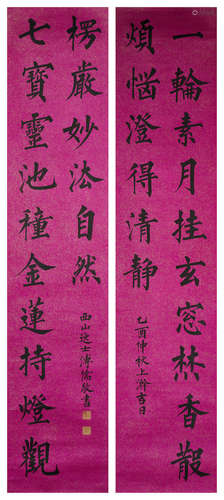 一輪素月挂玄窓焚香散
煩惱澄得清靜
乙酉仲秋上澣吉日
七寶靈池種金蓮持燈觀
楞嚴妙法自然
西山逸士溥儒敬書